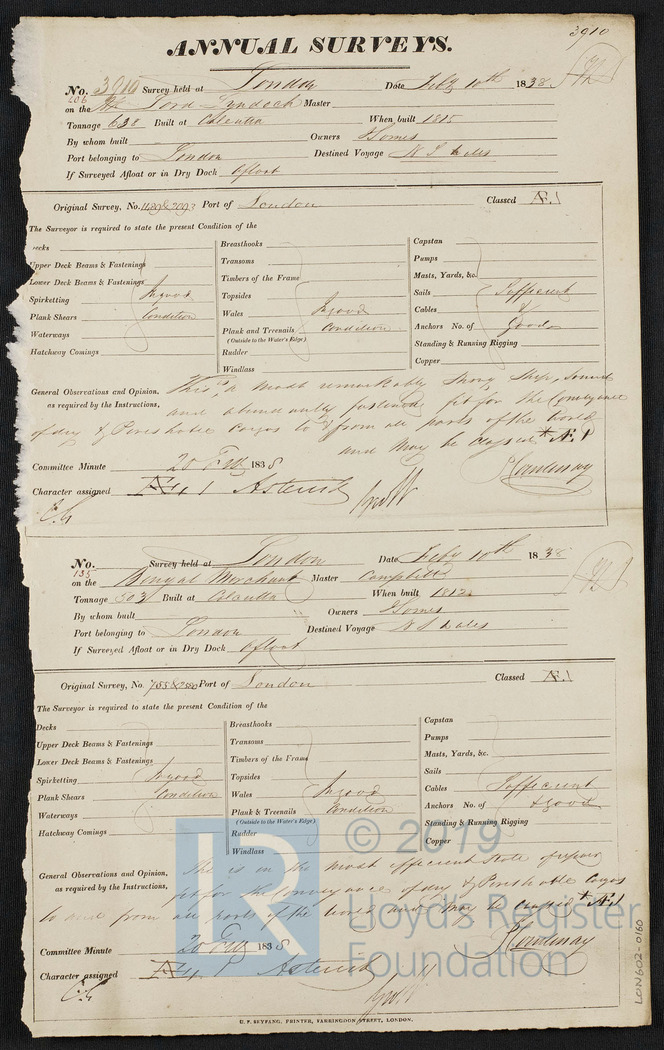 3910
ANNUAL SURVEYS.
No. 3910 Survey held at London Date Feby 10th 1838
206
on the Lord Lyndoch Master
Tonnage 638 Built at Calcutta When built 1815
By whom built Owners Somes
Port belonging to London Destined Voyage N S Wales
If Surveyed Afloat or in Dry Dock Afloat
Original Survey, No. Port of London Classed Æ.1
The Surveyor is required to state the present Condition of the
Decks
Upper Deck Beams & Fastenings
Lower Deck Beams & Fastenings
Spirketting In good
Plank Shears Condition
Waterways
Hatchway Comings
Breasthooks
Transoms
Timbers of the Frame
Topsides
Wales In good
Plank and Treenails Condition
(Outside to the Water's Edge)
Rudder
Windlass
Capstan
Pumps
Masts, Yards, &c.
Sails Sufficient
Cables &
Anchors No. of Good
Standing & Running Rigging
Copper
General Observations and Opinion, This is a most remarkably strong Ship, Sound
as required by the Instructions, and abundantly fastened, fit for the Conveyance
of dry & Perishable Cargos to & from all parts of the World
and may be classed * Æ 1
Committee Minute 20 Feby 1838
Character assigned Æ 1 Asterisk
No. Survey held at London Date Feby 10th 1838
135
on the Bengal Merchant Master Campbell
Tonnage 503 Built at Calcutta When built 1812
By whom built Owners Somes
Port belonging to London Destined Voyage N S Wales
If Surveyed Afloat or in Dry Dock Afloat
Original Survey, No. Port of London Classed Æ.1
The Surveyor is required to state the present Condition of the
Decks
Upper Deck Beams & Fastenings
Lower Deck Beams & Fastenings
Spirketting In good
Plank Shears Condition
Waterways
Hatchway Comings
Breasthooks
Transoms
Timbers of the Frame
Topsides
Wales In good
Plank & Treenails Condition
(Outside to the Water's Edge)
Rudder
Windlass
Capstan
Pumps
Masts, Yards, &c.
Sails
Cables Sufficient
Anchors No. of & good
Standing & Running Rigging
Copper
General Observations and Opinion, She is in the most efficient state of repair
as required by the Instructions, fit for the conveyance of dry & Perishable Cargos
to and from all parts of the World and may be classed * Æ 1
Committee Minute 20 Feby 1838
Character assigned Æ 1 Asterisk
U. F. SEYFANG, PRINTER, FARRINGDON STREET, LONDON.
LON602-0160
LR
© 2019
Lloyd's Register
Foundation